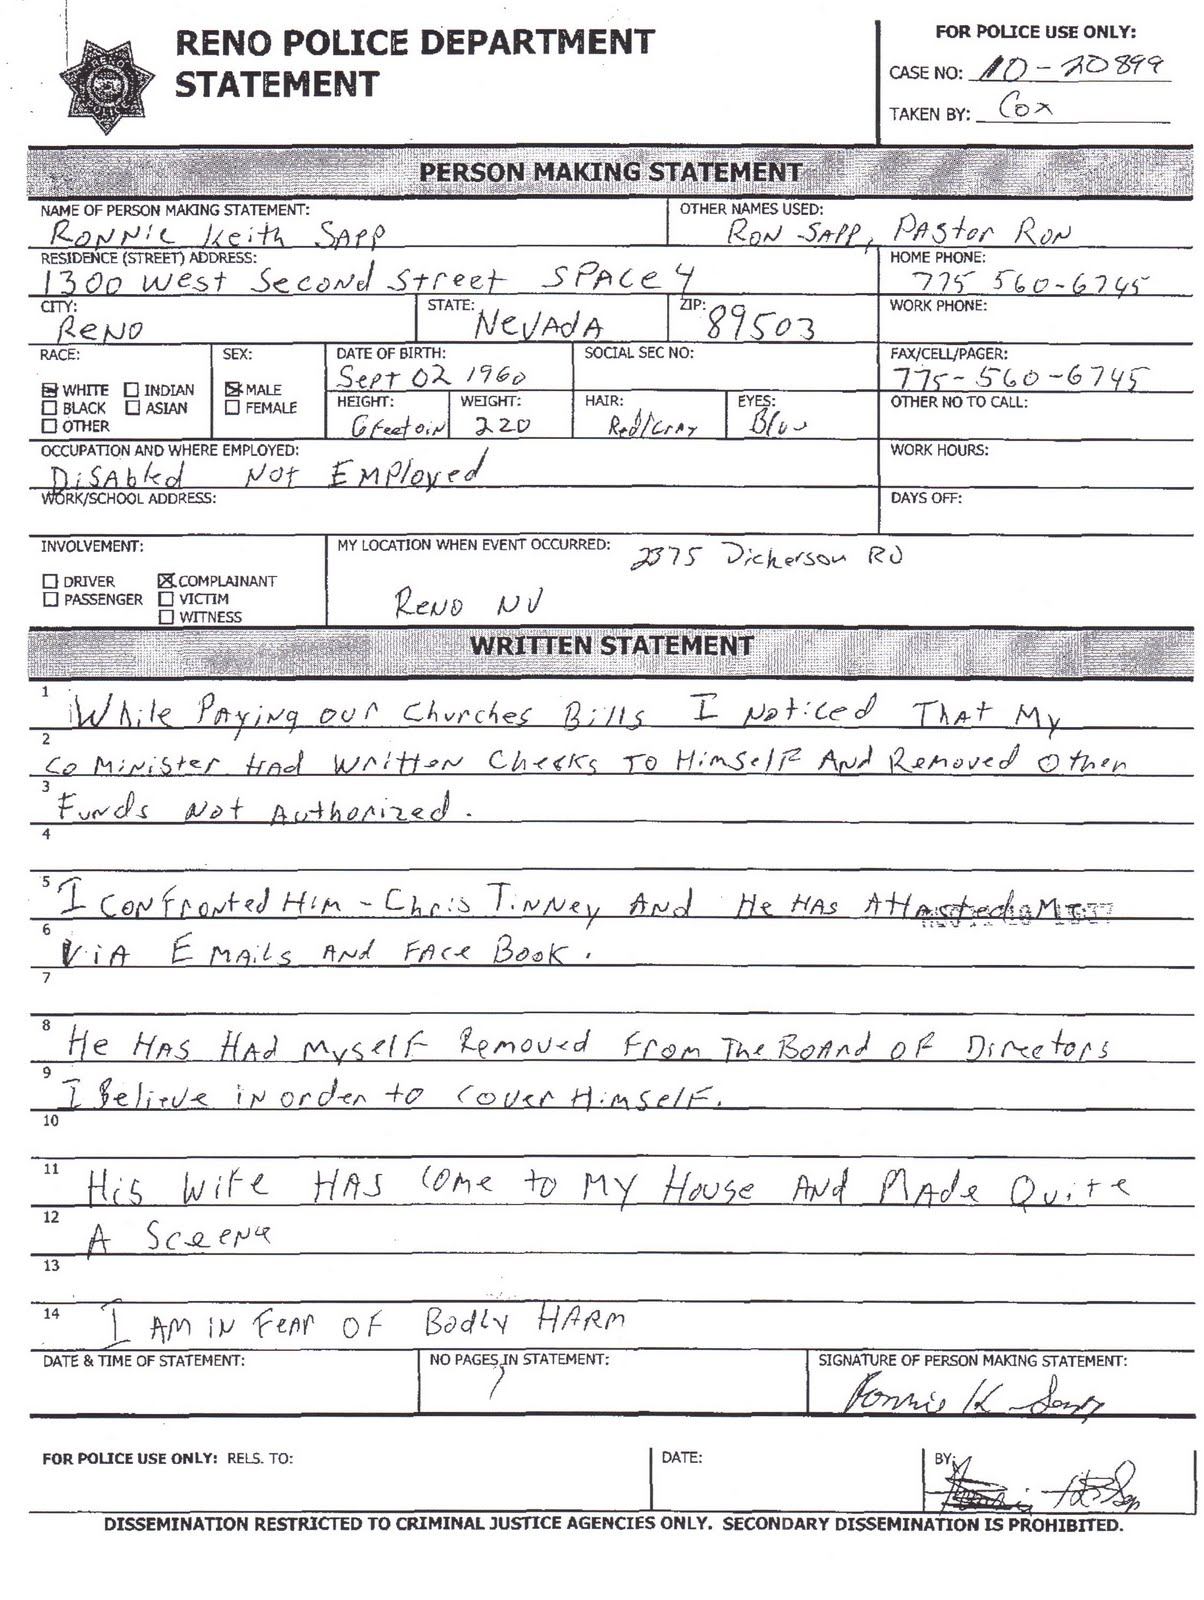 RENO POLICE DEPARTMENT
STATEMENT
FOR POLICE USE ONLY:
CASE NO: 10-20899
TAKEN BY: Cox
PERSON MAKING STATEMENT
NAME OF PERSON MAKING STATEMENT:
Ronnie Keith Sapp
OTHER NAMES USED:
Ron Sapp, Pastor Ron
RESIDENCE (STREET) ADDRESS:
1300 West Second Street SPACE 4
HOME PHONE:
775 560-6745
CITY:
Reno
STATE:
Nevada
ZIP:
89503
WORK PHONE:
RACE:
WHITE INDIAN
BLACK ASIAN
OTHER
SEX:
MALE
FEMALE
DATE OF BIRTH:
Sept 02 1960
SOCIAL SEC NO:
FAX/CELL/PAGER:
775-560-6745
HEIGHT:
6 Feet 0in
WEIGHT:
220
HAIR:
Red/Gray
EYES:
Blue
OTHER NO TO CALL:
OCCUPATION AND WHERE EMPLOYED:
Disabled Not Employed
WORK HOURS:
WORK/SCHOOL ADDRESS:
DAYS OFF:
INVOLVEMENT:
DRIVER COMPLAINANT
PASSENGER VICTIM
WITNESS
MY LOCATION WHEN EVENT OCCURRED: 2375 Dickerson RD
Reno NV
WRITTEN STATEMENT
1 While Paying our Churches Bills I noticed That My
2 co Minister Had written Checks To Himself And Removed Other
3 Funds Not Authorized.
4
5 I confronted Him - Chris Tinney And He Has
6 Via E mails And Face Book.
7
8 He Has Had myself Removed From The Board of Directors
9 I Believe in order to cover Himself.
10
11 His Wife Has come to My House And Made Quite
12 A Sceene
13
14 I Am in Fear of Bodly Harm
DATE & TIME OF STATEMENT:
NO PAGES IN STATEMENT:
SIGNATURE OF PERSON MAKING STATEMENT:
Ronnie K Sapp
FOR POLICE USE ONLY: RELS. TO:
DATE:
BY:
DISSEMINATION RESTRICTED TO CRIMINAL JUSTICE AGENCIES ONLY. SECONDARY DISSEMINATION IS PROHIBITED.